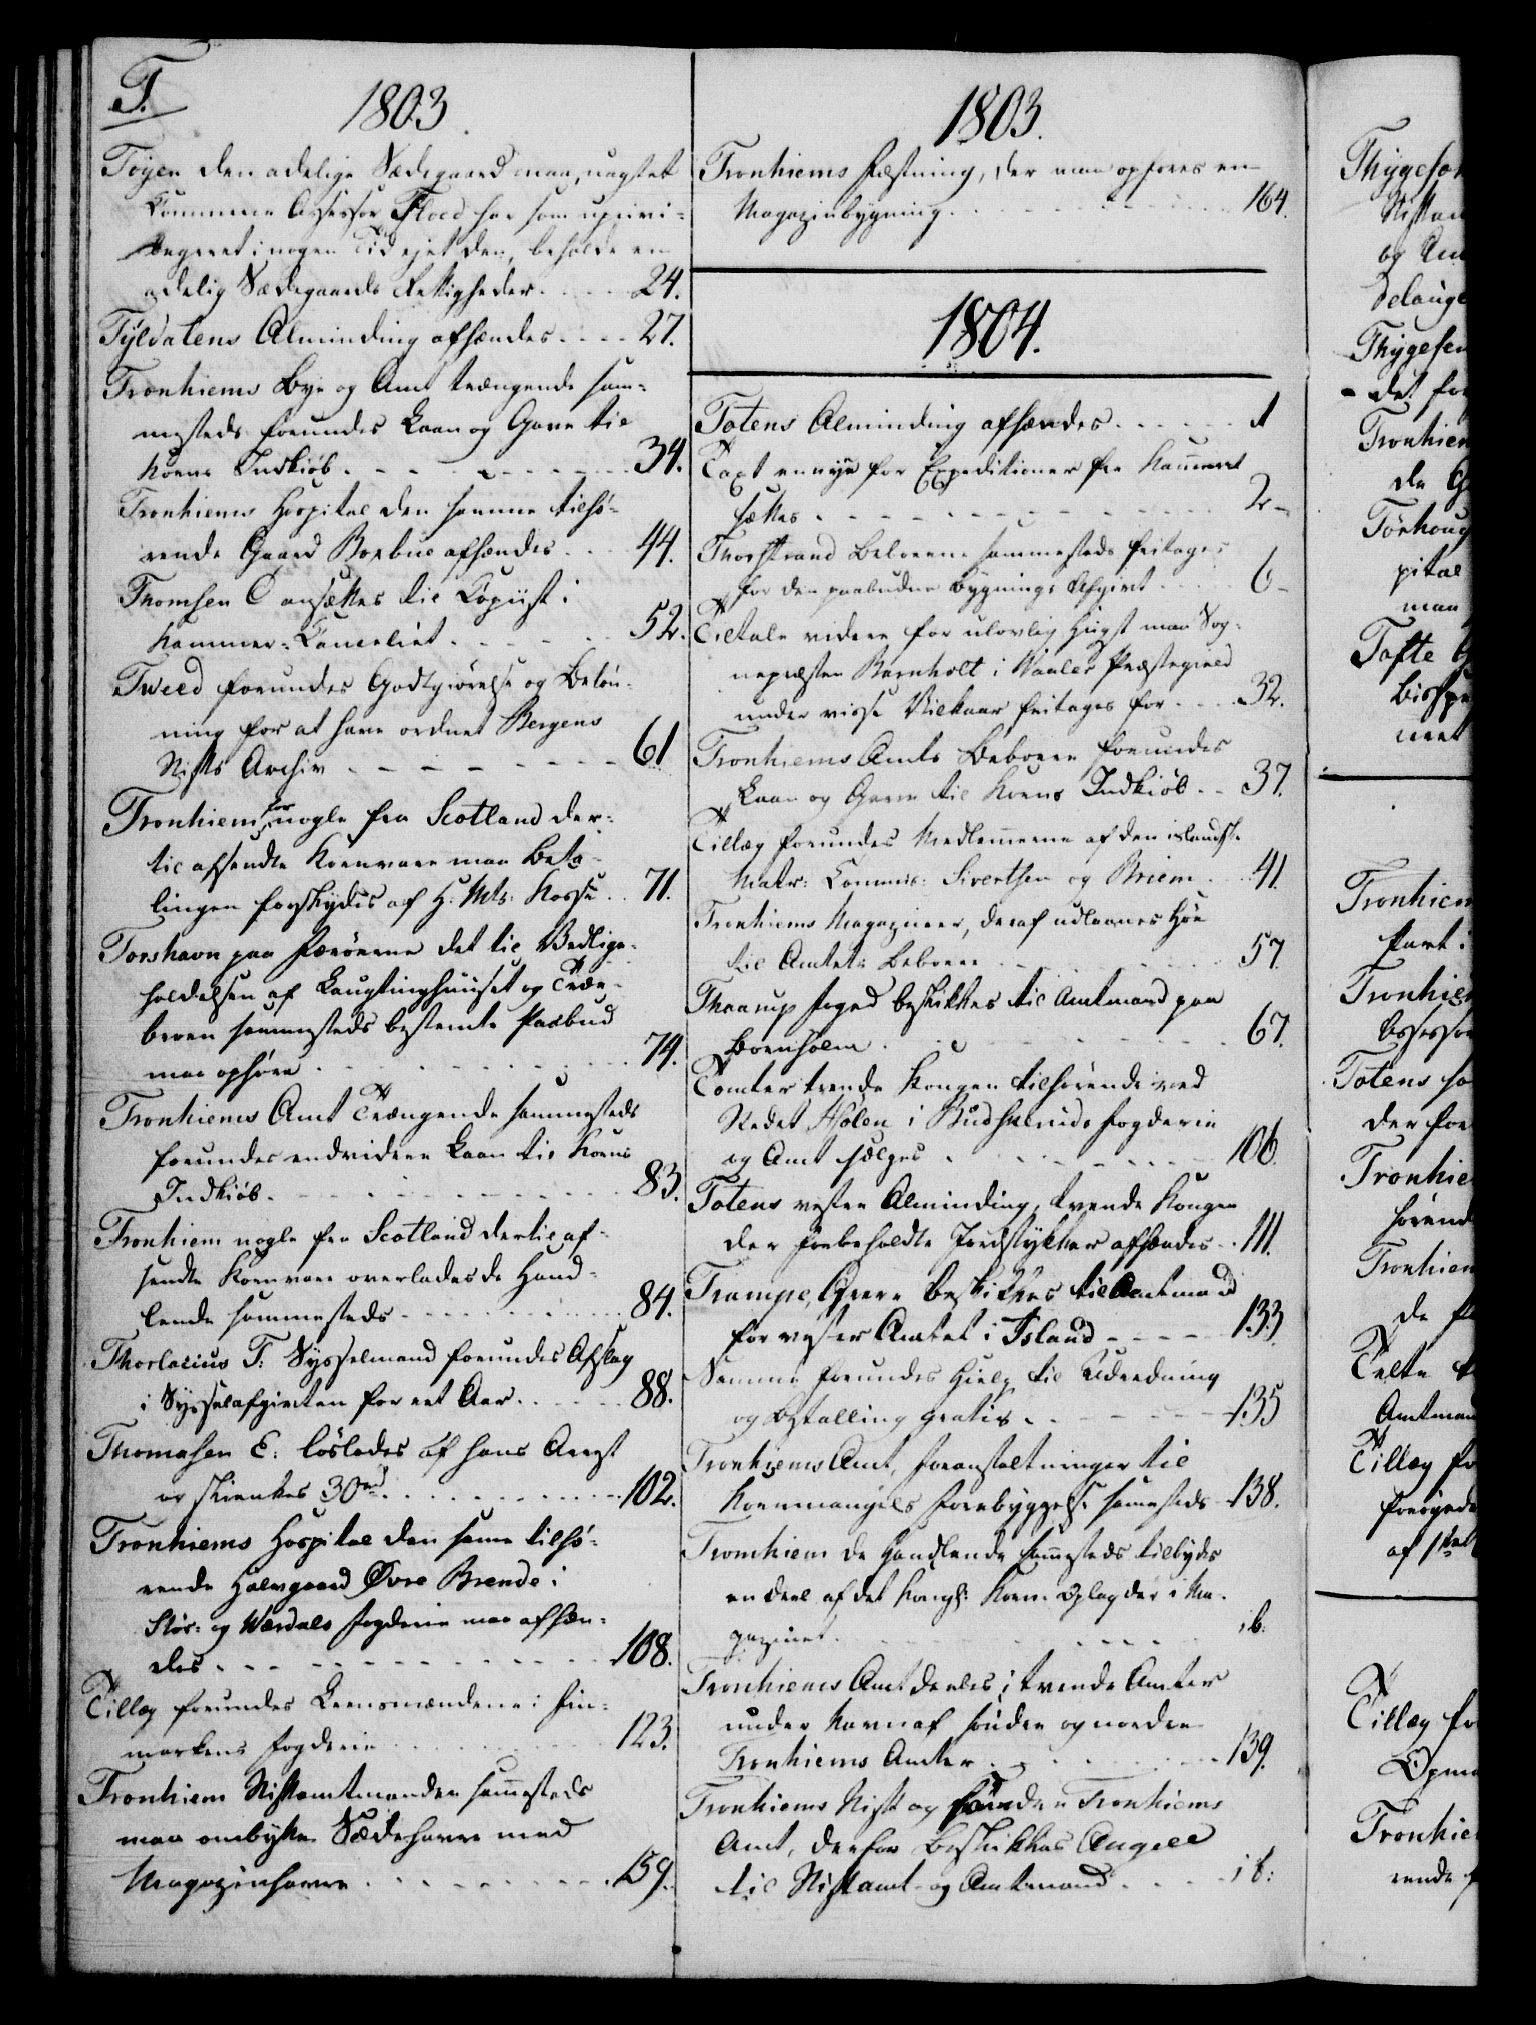 T.
1803
Töyen den adelige Sædegaard maa, uagtet
Kammer Assessor Floed har som uprivi-
legeret i nogen Tid ejet den, beholde en
adelig Sædegaards Rettigheder. 24.
Tyldalens Alminding afhændes 27.
Tronhiems Bye og Amt trængende sam-
mesteds forundes Laan og Gave til
Korns Indkiöb. 34.
Tronhiems Hospital den samme tilhö-
rende Gaard afhændes 44.
Thomsen C ansættes til Copiist i
Kammer-Canceliet 52.
Tweed forundes Godtgiörelse og Belön-
ning for at have ordnet Bergens
Stifts Archiv 61
Tronhiem for nogle fra Scotland der-
til afsendte Kornvare maa Beta-
lingen forskydes af H. Mts. Kasse 71.
Torshavn paa Færöerne det til Vedlige-
holdelsen af Laugtinghuuset og Træe-
broen sammesteds bestemte Paabud
maa ophöre 74.
Tronhiems Amt Trængende sammesteds
forundes endvidere Laan til Korns
Indkiöb. 83.
Tronhiem nogle fra Scotland dertil af-
sendte Kornvare overlades de Hand-
lende sammesteds 84.
Thorlacius T: Sysselmand forundes Afslag
i Sysselafgiften for eet Aar. 88.
Thomasen E: löslades af hans Arrest
og skienkes 30 rd 102.
Tronhiems Hospital den samme tilhö-
rende Halvgaard Övre Brende i
Stör- og Værdals Fogderie maa afhæn-
des 108.
Tillæg forundes Lensmændene i Fin-
markens Fogderie 123.
Tronhiem Stiftamtmanden sammesteds
maa ombytte Sædehavre med
Magazinhavre 159.
1803.
Tronhiems Fæstning, der maa opføres en
Magazinbygning 164.
1804.
Totens Alminding afhændes 1
Taxt en nye for Expeditioner fra Kammeret
sættes 2
Thorstrand Beboerne sammesteds fritages
for den paabudne Bygnings Afgivt 6
Tiltale videre for ulovlig Hugst maa Sog-
nepræsten Barnholt i Vaaler Præstegield
under visse Vilkaar fritages for 32.
Tronhiems Amts Beboere forundes
Laan og Gave til Korns Indkiöb 37.
Tillæg forundes Medlemmerne af den islandske
Matr: Commis: Sivertsen og Briem 41.
Tronhiems Magaziner, deraf udlaanes Höe
til Amtets Beboere 57.
Thaarup Foged beskikkes til Amtmand paa
Bornholm 67.
Tomter trende Kongen tilhörende ved
Stedet Hölen i Fogderie
og Amt sælges 106.
Totens vestre Alminding, tvende Kongen
der forbeholdte Jordstykker afhændes 111.
Trampe, Greve beskikkes til Amtmand
for vester Amtet i Island 133
Samme forundes Hielp til Udredning
og Bestalling gratis 135
Tronhiems Amt, Foranstaltninger til
Kornmangels Forebyggelse sammesteds 138.
Tronhiem de Handlende sammesteds tilbydes
en deel af det Kongl: Korn Oplag der i Ma-
gazinet ib.
Tronhiems Amt deeles i tvende Amter
under Navn af söndre og nordre
Tronhiems Amter 139.
Tronhiems Stift og söndre Tronhiems
Amt, derfor beskikkes Angell
til Stiftamt- og Amtmand ib:
Thygeson
Stiftam
og
Thygesen
det for
Tronhiem
de
pital
maa
Tofte
Tronhiem
Tronhiem
Assessor
Totens
der for
Tronhie
hörend
Tronhiem
de
Telte
Amtmand
Tillæg for
af 1ste
Tillæg for
Tronhie
rende